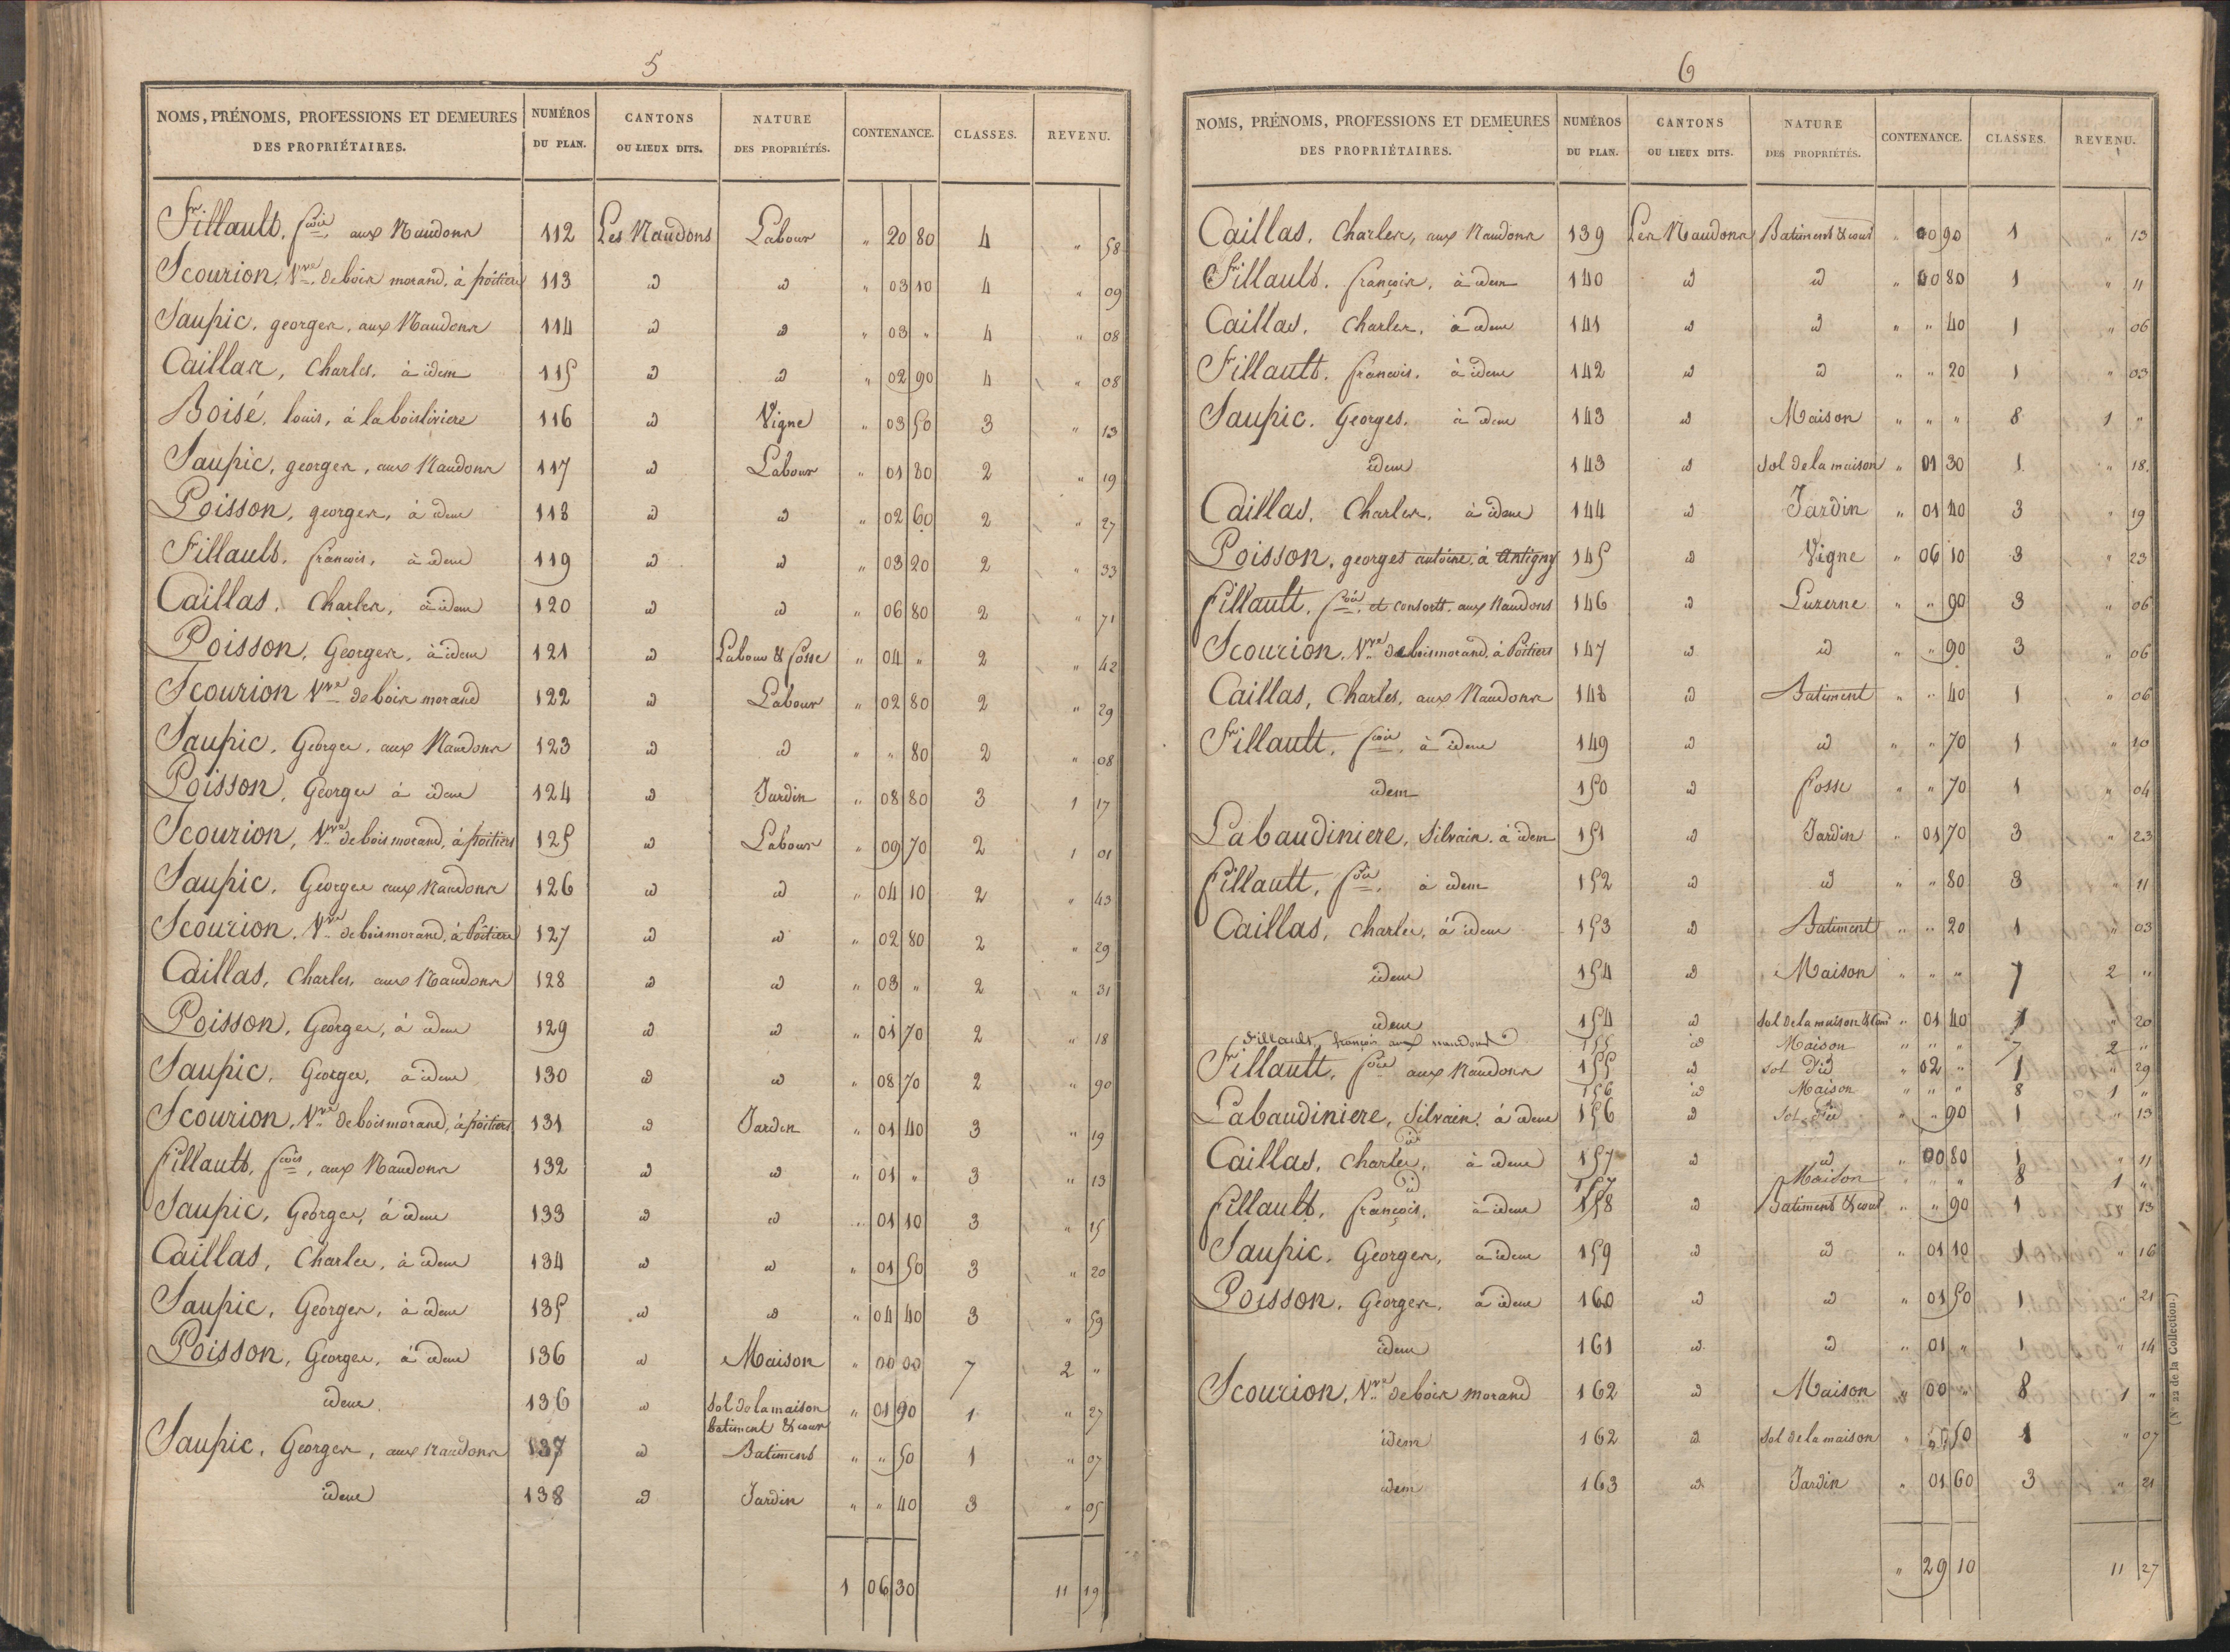 5
NOMS, PRÉNOMS, PROFESSIONS ET DEMEURES DES PROPRIÉTAIRES. NUMÉROS DU PLAN. CANTONS OU LIEUX DITS. NATURE DES PROPRIÉTÉS. CONTENANCE. CLASSES. REVENU.
Fillault, fçois, aux Naudons 112 Les Naudons Labour " 20 80 4 " 58
Scourion, Vve de bois morand, à poitiers 113 id id " 03 10 4 " 09
Saupic, georges, aux Naudons 114 id id " 03 " 4 " 08
Caillas, Charles, à idem 115 id id " 02 90 4 " 08
Boisé, louis, à la boisliviere 116 id Vigne " 03 50 3 " 13
Saupic, georges, aux Naudons 117 id Labour " 01 80 2 " 19
Poisson, georges, à idem 118 id id " 02 60 2 " 27
Fillault, francois, à idem 119 id id " 03 20 2 " 33
Caillas, Charles, à idem 120 id id " 06 80 2 " 71
Poisson, Georges, à idem 121 id Labour & fosse " 04 " 2 " 42
Scourion Vve de bois morand 122 id Labour " 02 80 2 " 29
Saupic, Georges, aux Naudons 123 id id " " 80 2 " 08
Poisson, Georges à idem 124 id Jardin " 08 80 3 1 17
Scourion, Vve de bois morand, à poitiers 125 id Labour " 09 70 2 1 01
Saupic, Georges aux Naudons 126 id id " 04 10 2 " 43
Scourion, Vve de boismorand, à Poitiers 127 id id " 02 80 2 " 29
Caillas, Charles, aux Naudons 128 id id " 03 " 2 " 31
Poisson, Georges, à idem 129 id id " 01 70 2 " 18
Saupic, Georges, à idem 130 id id " 08 70 2 " 90
Scourion, Vve de boismorand, à poitiers 131 id Jardin " 01 40 3 " 19
Fillault, fçois, aux Naudons 132 id id " 01 " 3 " 13
Saupic, Georges, à idem 133 id id " 01 10 3 " 15
Caillas, Charles, à idem 134 id id " 01 50 3 " 20
Saupic, Georges, à idem 135 id id " 04 40 3 " 59
Poisson, Georges, à idem 136 id Maison " 00 00 7 2 "
idem 136 id Sol de la maison batiment & cour " 01 90 1 " 27
Saupic, Georges, aux Naudons 137 id Batiment " " 50 1 " 07
idem 138 id Jardin " " 40 3 " 05
1 06 30 11 19
6
NOMS, PRÉNOMS, PROFESSIONS ET DEMEURES DES PROPRIÉTAIRES. NUMÉROS DU PLAN. CANTONS OU LIEUX DITS. NATURE DES PROPRIÉTÉS. CONTENANCE. CLASSES. REVENU.
Caillas, Charles, aux Naudons 139 Les Naudons Batiment & cour " 00 90 1 " 13
Fillault, françois, à idem 140 id id " 00 80 1 " 11
Caillas, Charles, à idem 141 id id " " 40 1 " 06
Fillault, francois, à idem 142 id id " " 20 1 " 03
Saupic, Georges, à idem 143 id Maison " " " 8 1 "
idem 143 id Sol de la maison " 01 30 1 " 18
Caillas, Charles, à idem 144 id Jardin " 01 40 3 " 19
Poisson, georges antoine, à Antigny 145 id Vigne " 06 10 3 " 23
fillault, fçois, et consortt. aux Naudons 146 id Luzerne " " 90 3 " 06
Scourion, Vve de boismorand, à Poitiers 147 id id " " 90 3 " 06
Caillas, Charles, aux Naudons 148 id Batiment " " 40 1 " 06
Fillault, fçois, à idem 149 id id " " 70 1 " 10
idem 150 id fosse " " 70 1 " 04
Labaudiniere, Silvain, à idem 151 id Jardin " 01 70 3 " 23
fillault, fçois, à idem 152 id id " " 80 3 " 11
Caillas, charles, à idem 153 id Batiment " " 20 1 " 03
idem 154 id Maison " " " 7 2 "
idem 154 id Sol de la maison & cour " 01 40 1 " 20
Fillault, françois aux naudons 155 id Maison " " " 7 2 "
Fillault, fçois aux Naudons 155 id Sol d'id " 02 " 1 " 29
156 id Maison " " " 8 1 "
Labaudiniere, Silvain, à idem 156 id Sol d'id " " 90 1 " 13
Caillas, charles, à idem 157 id id " 00 80 1 " 11
id 157 Maison " " " 8 1 "
fillault, françois, à idem 158 id Batiment & cour " " 90 1 " 13
Saupic, Georges, à idem 159 id id " 01 10 1 " 16
Poisson, Georges, à idem 160 id id " 01 50 1 " 21
idem 161 id id " 01 " 1 " 14
Scourion, Vve de bois morand 162 id Maison " 00 " 8 1 "
idem 162 id Sol de la maison " 50 1 " 07
idem 163 id Jardin " 01 60 3 " 21
" 29 10 11 27
(N° 22 de la Collection.)